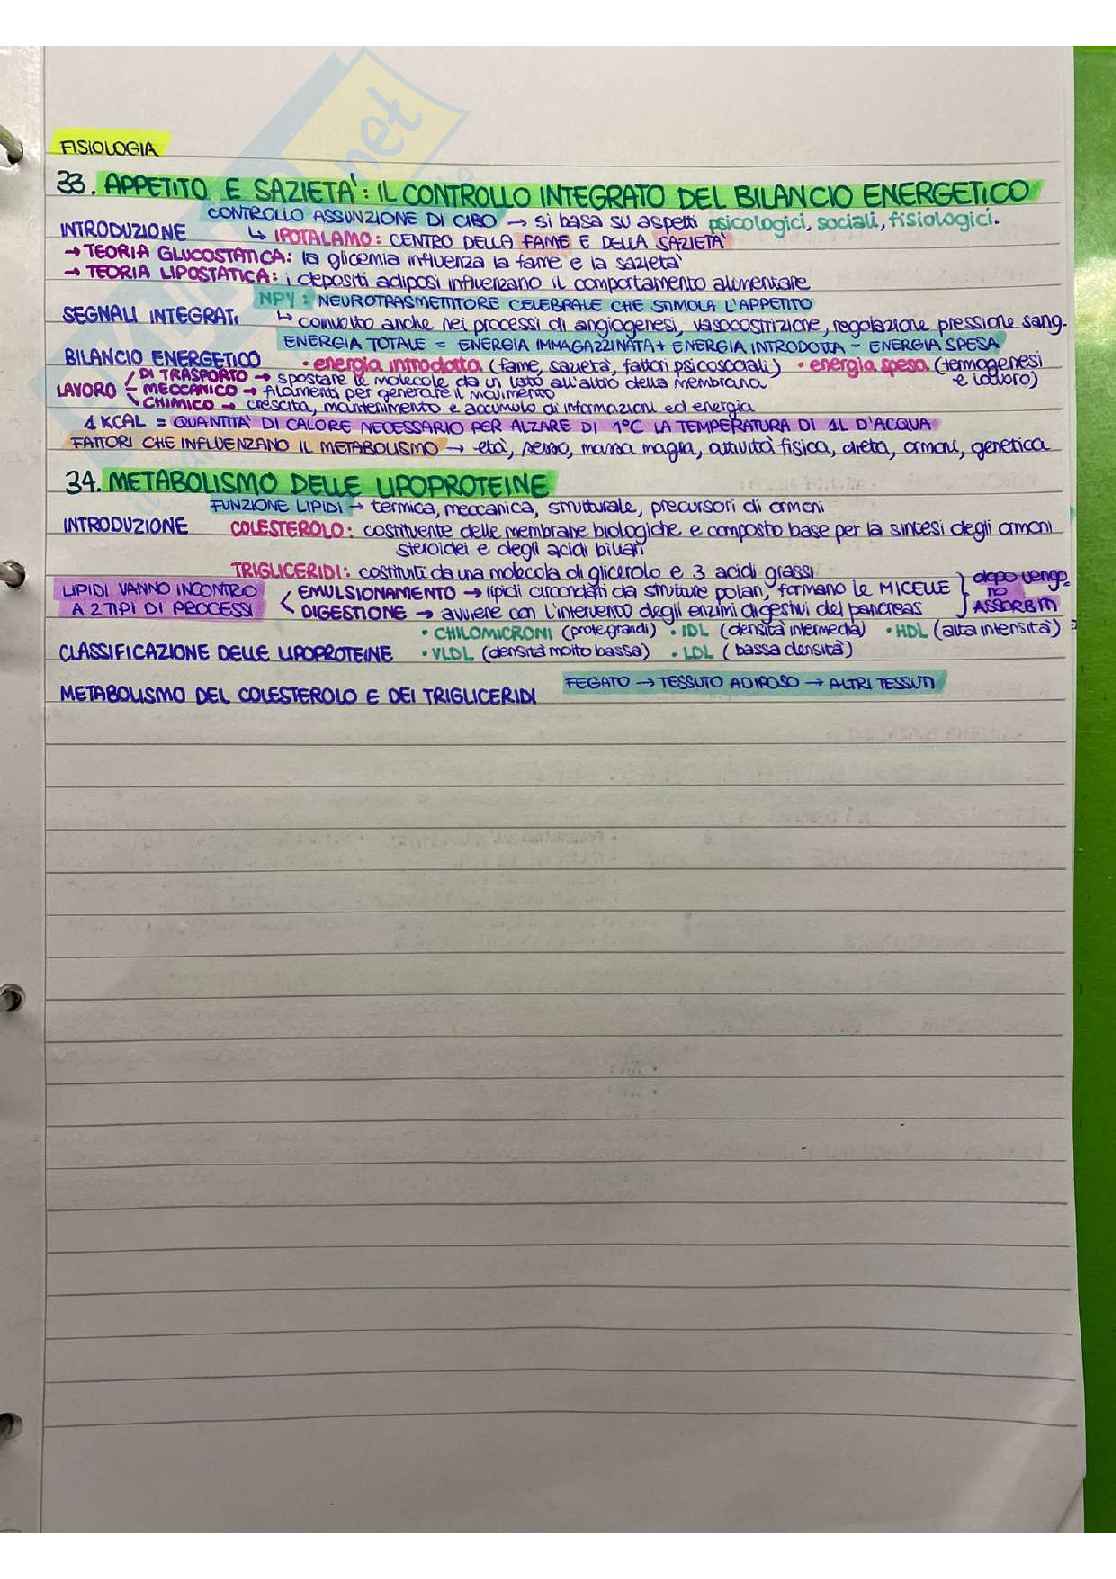 FISIOLOGIA
33. APPETITO E SAZIETA': IL CONTROLLO INTEGRATO DEL BILANCIO ENERGETICO
CONTROLLO ASSUNZIONE DI CIBO → si basa su aspetti psicologici, sociali, fisiologici.
INTRODUZIONE ↳ IPOTALAMO: CENTRO DELLA FAME E DELLA SAZIETA'
→ TEORIA GLUCOSTATICA: la glicemia influenza la fame e la sazietà
→ TEORIA LIPOSTATICA: i depositi adiposi influenzano il comportamento alimentare
NPY: NEUROTRASMETTITORE CELEBRALE CHE STIMOLA L'APPETITO
SEGNALI INTEGRATI ↳ coinvolto anche nei processi di angiogenesi, vasocostrizione, regolazione pressione sang.
ENERGIA TOTALE = ENERGIA IMMAGAZZINATA + ENERGIA INTRODOTTA - ENERGIA SPESA
BILANCIO ENERGETICO • energia introdotta (fame, sazietà, fattori psicosociali) • energia spesa (termogenesi e lavoro)
DI TRASPORTO → spostare le molecole da un lato all'altro della membrana
LAVORO – MECCANICO → filamenti per generare il movimento
CHIMICO → crescita, mantenimento e accumulo di informazioni ed energia
1 KCAL = QUANTITA' DI CALORE NECESSARIO PER ALZARE DI 1°C LA TEMPERATURA DI 1L D'ACQUA
FATTORI CHE INFLUENZANO IL METABOLISMO → età, sesso, massa magra, attività fisica, dieta, ormoni, genetica
34. METABOLISMO DELLE LIPOPROTEINE
FUNZIONE LIPIDI → termica, meccanica, strutturale, precursori di ormoni
INTRODUZIONE COLESTEROLO: costituente delle membrane biologiche e composto base per la sintesi degli ormoni
steroidei e degli acidi biliari
TRIGLICERIDI: costituiti da una molecola di glicerolo e 3 acidi grassi
LIPIDI VANNO INCONTRO EMULSIONAMENTO → lipidi circondati da strutture polari, formano le MICELLE dopo vengono
A 2 TIPI DI PROCESSI DIGESTIONE → avviene con l'intervento degli enzimi digestivi del pancreas ASSORBITI
• CHILOMICRONI (più grandi) • IDL (densità intermedia) • HDL (alta intensità)
CLASSIFICAZIONE DELLE LIPOPROTEINE • VLDL (densità molto bassa) • LDL (bassa densità)
FEGATO → TESSUTO ADIPOSO → ALTRI TESSUTI
METABOLISMO DEL COLESTEROLO E DEI TRIGLICERIDI